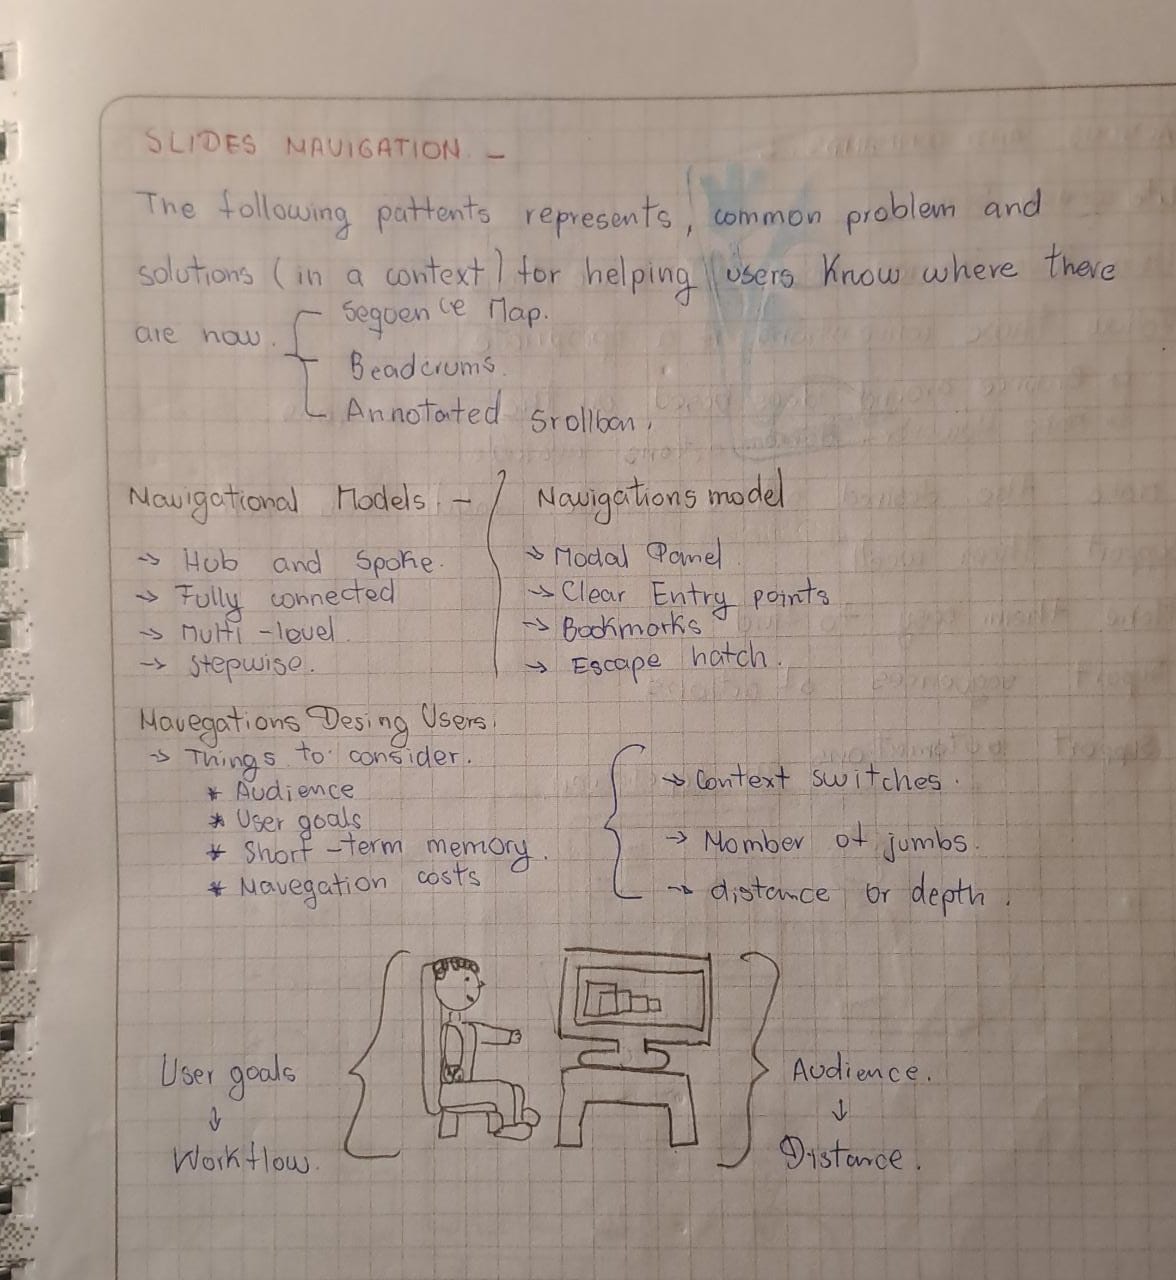 SLIDES NAVIGATION -
The following pattents represents, common problem and
solutions (in a context) for helping users Know where there
are now.
Sequence Map.
Beadcrums.
Annotated Srollban.
Navigational Models -
-> Hub and Spoke.
-> Fully connected
-> Multi-level.
-> Stepwise.
Navigations model
-> Modal Panel
-> Clear Entry points
-> Bookmorks
-> Escape hatch.
Navegations Desing Users.
-> Things to consider.
* Audience
* User goals
* Short-term memory.
* Navegation costs
-> Context switches.
-> Nomber of jumbs.
-> distance or depth.
User goals
↓
Workflow.
Audience.
↓
Distance.